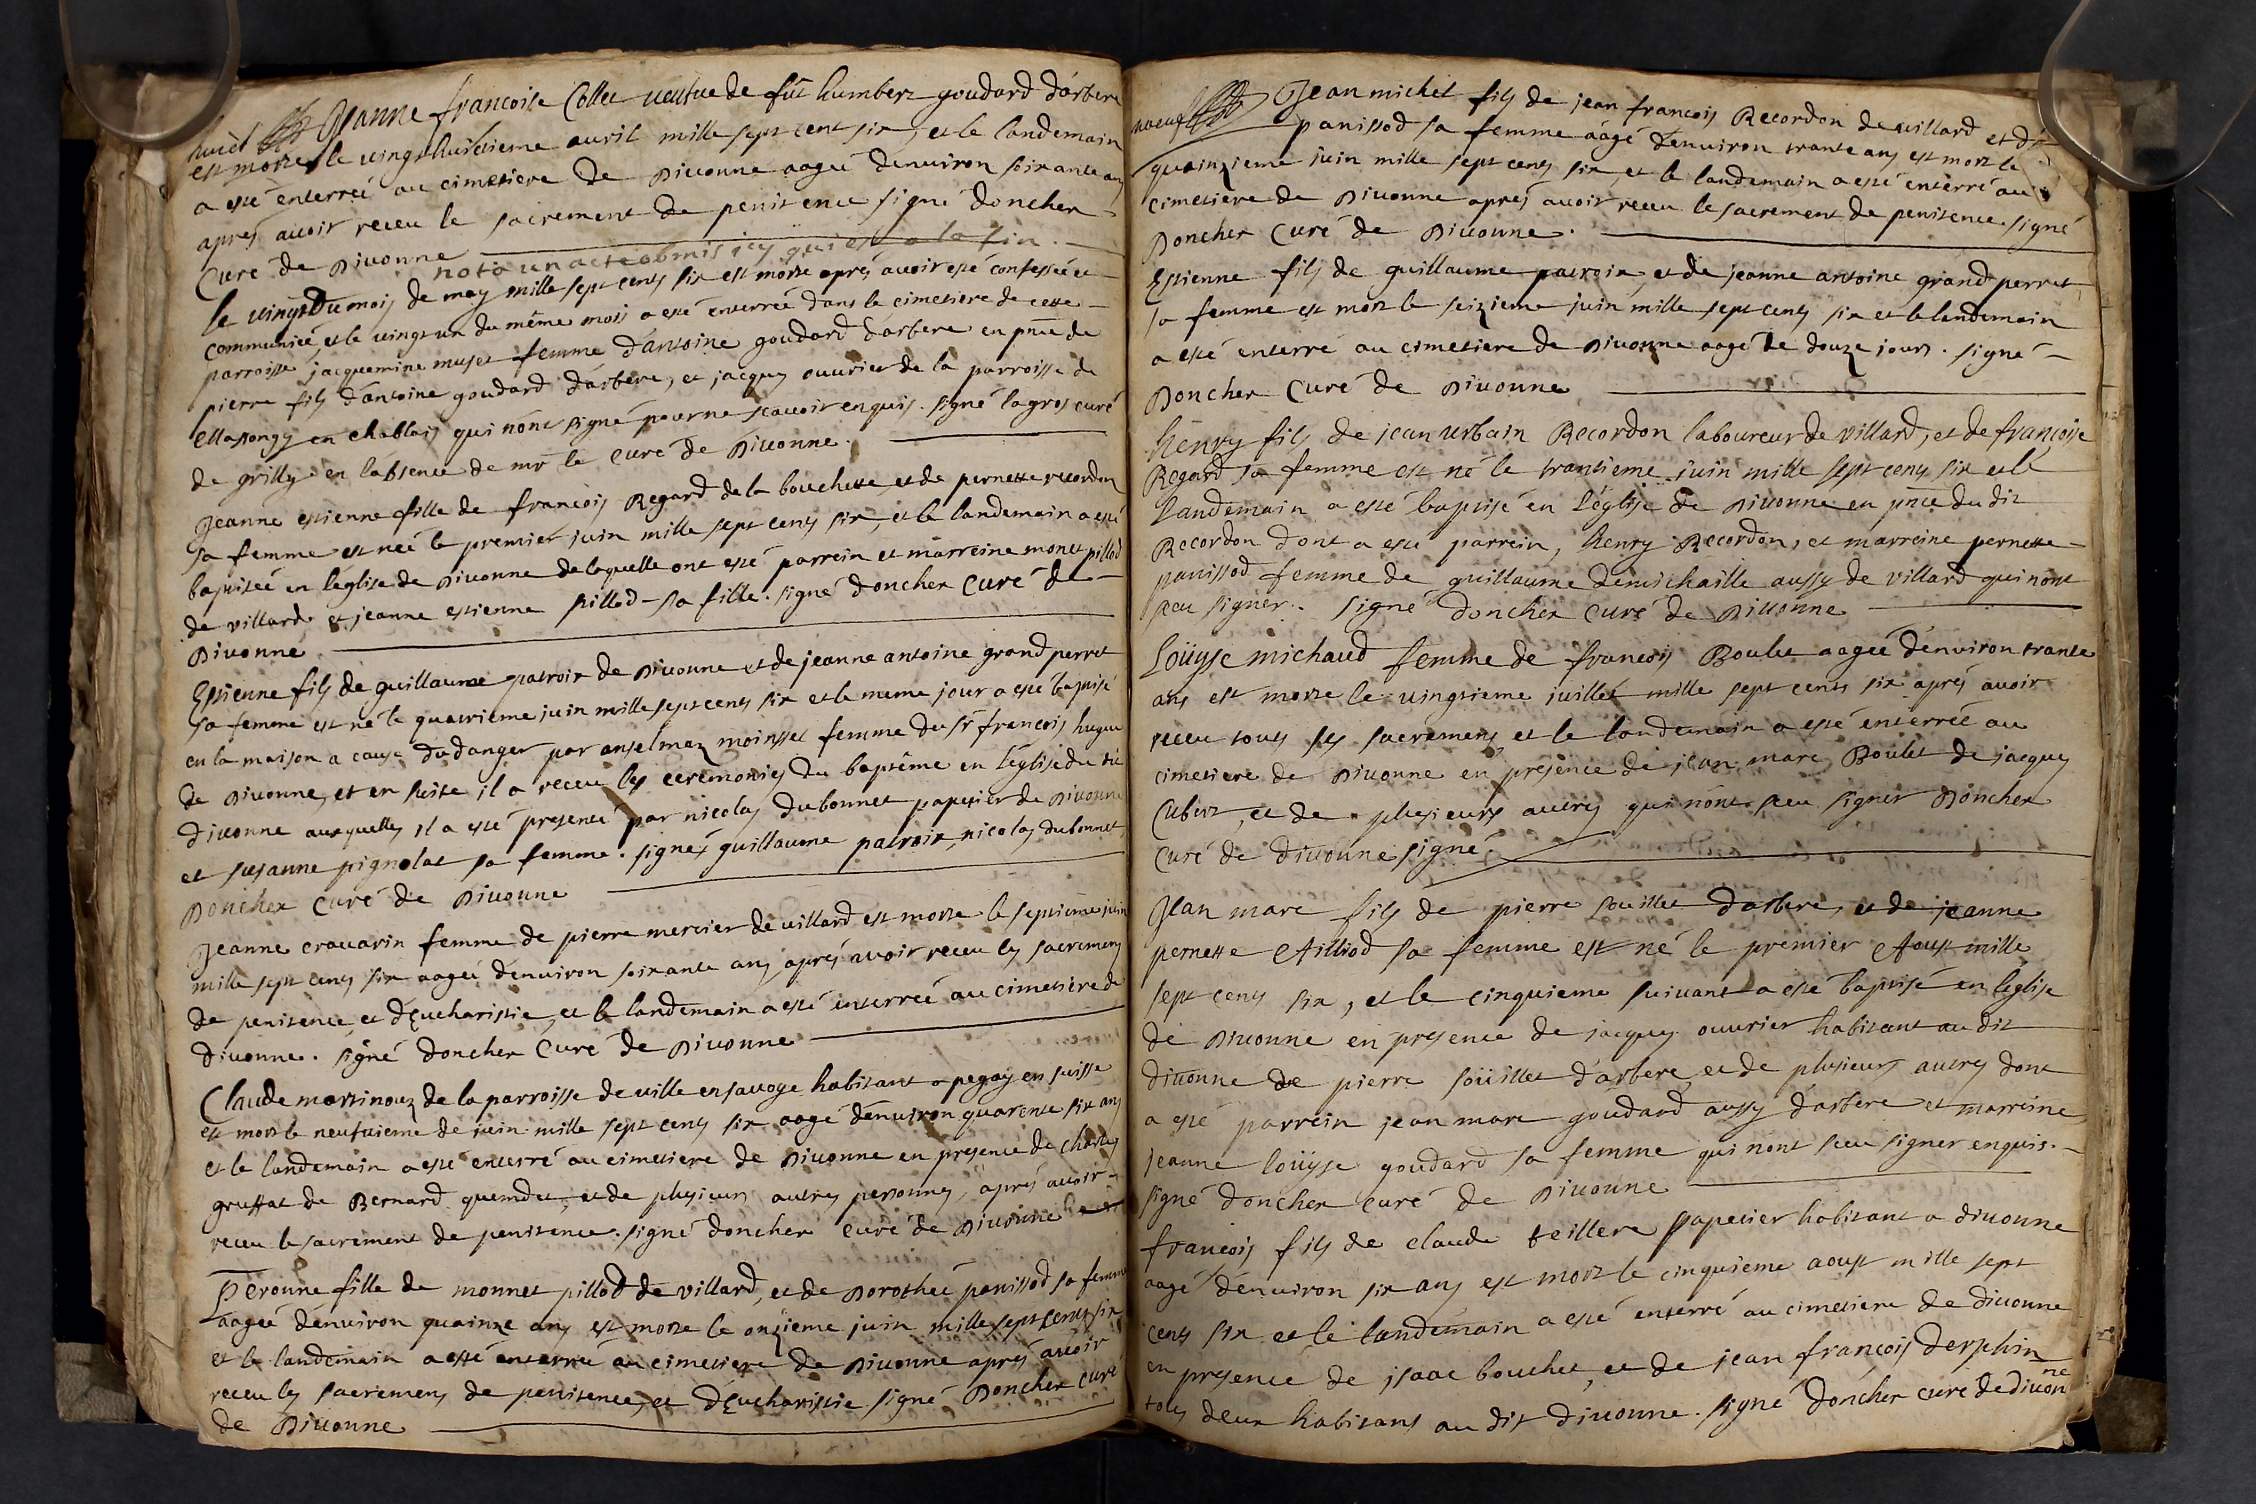 huict Jeanne francoise Collet ueufue de fût humbert goudard d'arbere
est morte le uingt huictieme auril mille sept cent six, et le landemain
a esté enterreé au cimetiere de Diuonne aageé denuiron soixante ans
apres auoir receu le sacrement de penitence signé doncher
Curé de Diuonne
nota un acte obmis icy qui est a la fin.
le uingt du mois de may mille sept cents six est morte aprés auoir esté confesseé et
communieé, et le uingt un du même mois a esté enterreé dans le cimetiere de cette
parroisse jacquemine muset femme d'antoine goudard d'arbere en pnce de
pierre fils d'antoine goudard d'arbere, et jacques ouurier de la parroisse de
Massongy en chablais qui n'ont signé pour ne scauoir enquis. signé lagros curé
de grilly en l'absence de mr le curé de Diuonne.
Jeanne estienne fille de francois Regard de la bouchette, et de pernette recordon
sa femme est neé le premier juin mille sept cents six, et le landemain a esté
baptiseé en l'eglise de Diuonne de laquelle ont esté parrein et marreine monet pillod
de villard et jeanne estienne pillod sa fille. signé doncher Curé de
Diuonne
Estienne fils de guillaume patroix de Diuonne et de jeanne antoine grand perret
sa femme est né le quatrieme juin mille sept cents six et le meme jour a esté baptisé
en la maison a cause du danger par anselmaz moinsset femme du Sr francois hugue
de Diuonne, et en suite il a receu les ceremonies du baptême en l'église du dit
diuonne auxquelles il a esté presenté par nicolas dubonnet papetier de Diuonne
et susanne pignolat sa femme. signés guillaume patroix, nicolas dubonnet,
Doncher Curé de Diuonne
Jeanne crauarin femme de pierre mercier de villard est morte le septieme juin
mille sept cents six aageé d'enuiron soixante ans aprés auoir receu les sacremens
de penitence, et d'Eucharistie, et le landemain a esté enterreé au cimetiere de
diuonne. signé doncher Curé de Diuonne
Claude martinouz de la parroisse de ville en sauoye habitant a pegay en suisse
est mort le neufuieme de juin mille sept cents six aagé d'enuiron quarente six ans
et le landemain a esté enterré au cimetiere de Diuonne en presence de charles
gruffat de Bernard quendet, et de plusieurs autres personnes, aprés auoir
receu le sacrement de penitence. signé doncher curé de Diuonne
Peronne fille de monnet pillod de villard, et de Dorotheé panissod sa femme
aageé d'enuiron quainze ans est morte le onzieme juin mille sept cents six
et le landemain a esté enterreé au cimetiere de Diuonne aprés auoir
receu les sacremens de penitence, et d'Eucharistie signé Doncher curé
de Diuonne
noeuf Jean michel fils de jean francois Recordon de villard et d
panissod sa femme aâgé d'enuiron trante ans est mort le
quainzieme juin mille sept cents six, et le landemain a esté enterré au
cimetiere de Diuonne aprés auoir receu le sacrement de penitence. signé
Doncher Curé de Diuonne.
Estienne fils de guillaume patroix, et de jeanne antoine grand perret
sa femme est mort le seizieme juin mille sept cents six et le landemain
a esté enterré au cimetiere de Diuonne aagé de douze jours. signé
Doncher Curé de Diuonne
henry fils de jean urbain Recordon laboureur de villard, et de françoise
Regard sa femme est né le trantieme juin mille sept cents six et le
landemain a esté baptisé en l'église de Diuonne en pnce du dit
Recordon dont a esté parrein, henry Recordon, et marreine pernette
panissod femme de guillaume demichaille aussy de villard qui n'ont
sceu signer. signé doncher Curé de Diuonne
Loüyse michaud femme de francois Boulet aageé d'enuiron trante
ans est morte le uingtieme juillet mille sept cents six aprés auoir
receu tous les sacremens et le landemain a esté enterreé au
cimetiere de Diuonne en presence de jean marc Boulet de jacques
Cubert, et de plusieurs autres qui n'ont sceu signer Doncher
Curé de diuonne signé.
Jean marc fils de pierre souillet d'arbere, et de jeanne
pernette Ailliod sa femme est né le premier Aoust mille
sept cents six, et le cinquieme suiuant a esté baptisé en l'église
de Diuonne en presence de jacques ouurier habitant au dit
diuonne de pierre soüillet d'arbere, et de plusieurs autres dont
a esté parrein jean marc goudard aussy d'arbere et marreine
jeanne loüyse goudard sa femme qui n'ont sceu signer enquis.
signé doncher curé de Diuonne
francois fils de claude teillere papetier habitant a diuonne
aagé d'enuiron six ans est mort le cinquieme aoust mille sept
cents six et le landemain a esté enterré au cimetiere de diuonne
en presence de jsaac bouchet, et de jean françois derphin
tous deux habitans au dit diuonne. signé doncher curé de diuonne